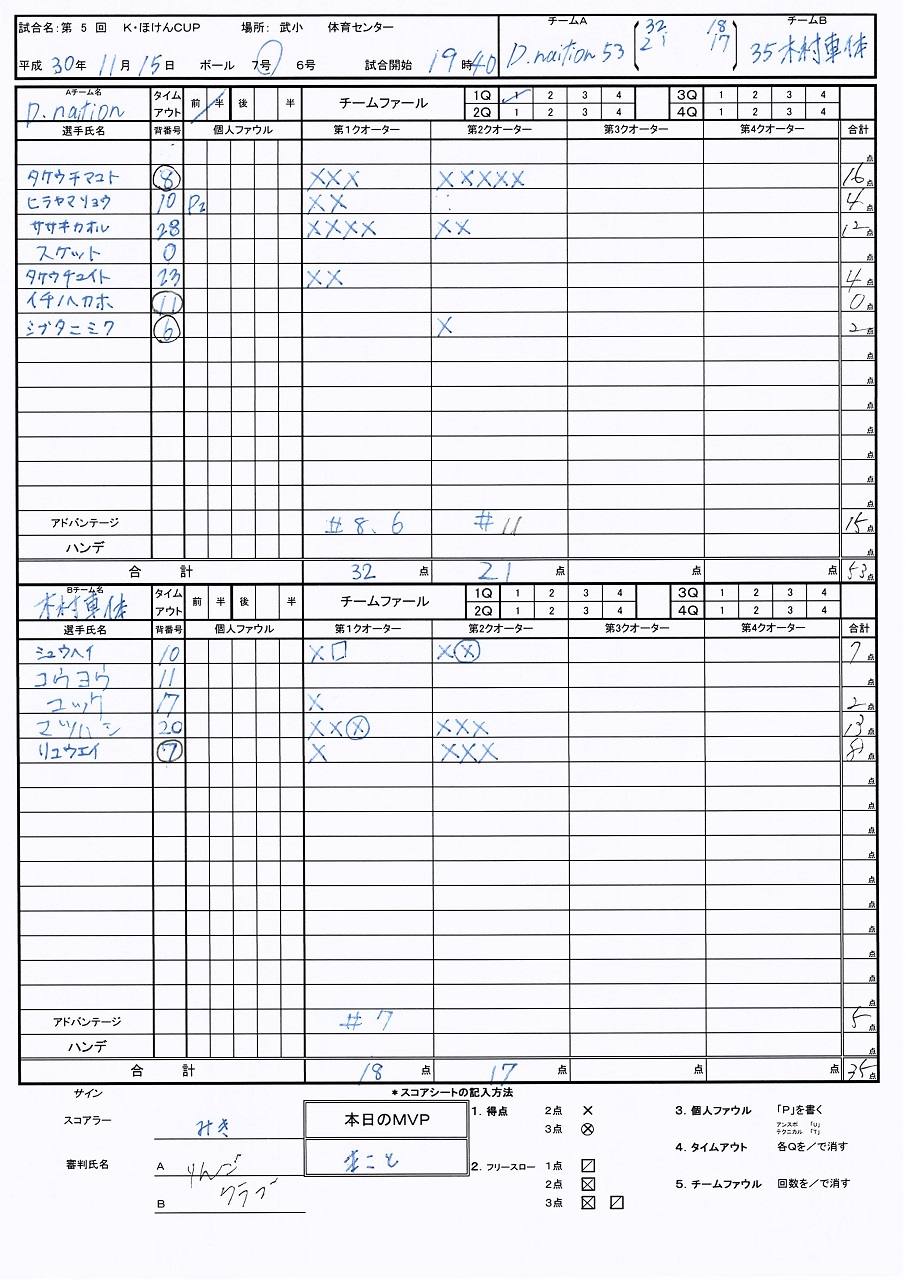 試合名:第 5 回 K・ほけんCUP 場所: 武小 体育センター
平成 30年 11月 15日 ボール 7号 6号 試合開始 19時40
チームA チームB
D.naition 53 32 18 35 木村車体
21 17
Aチーム名 D.nation タイムアウト 前 半 後 半 チームファール 1Q 1 2 3 4 3Q 1 2 3 4
2Q 1 2 3 4 4Q 1 2 3 4
選手氏名 背番号 個人ファウル 第1クオーター 第2クオーター 第3クオーター 第4クオーター 合計
点
タケウチマコト 8 XXX XXXXX 16点
ヒラヤマリョウ 10 P2 XX 4点
ササキカオル 28 XXXX XX 12点
スケット 0 点
タケウチユイト 23 XX 4点
イチノヘカホ 11 0点
シブタニミク 6 X 2点
点
点
点
点
点
点
点
アドバンテージ #8、6 #11 15点
ハンデ 点
合 計 32 点 21 点 点 点 53点
Bチーム名 木村車体 タイムアウト 前 半 後 半 チームファール 1Q 1 2 3 4 3Q 1 2 3 4
2Q 1 2 3 4 4Q 1 2 3 4
選手氏名 背番号 個人ファウル 第1クオーター 第2クオーター 第3クオーター 第4クオーター 合計
シュウヘイ 10 X□ XⓍ 7点
コウヨウ 11 点
ユック 17 X 2点
マツバシ 20 XXⓍ XXX 13点
リュウエイ 7 X XXX 8点
点
点
点
点
点
点
点
点
点
点
アドバンテージ #7 5点
ハンデ 点
合 計 18 点 17 点 点 点 35点
サイン
スコアラー みき
審判氏名 A りんご
B クララ
本日のMVP
まこと
*スコアシートの記入方法
1. 得点 2点 ×
3点 ⊗
2. フリースロー 1点 ⍁
2点 ☒
3点 ☒ ⍁
3. 個人ファウル 「P」を書く
アンスポ 「U」
テクニカル 「T」
4. タイムアウト 各Qを/で消す
5. チームファウル 回数を/で消す